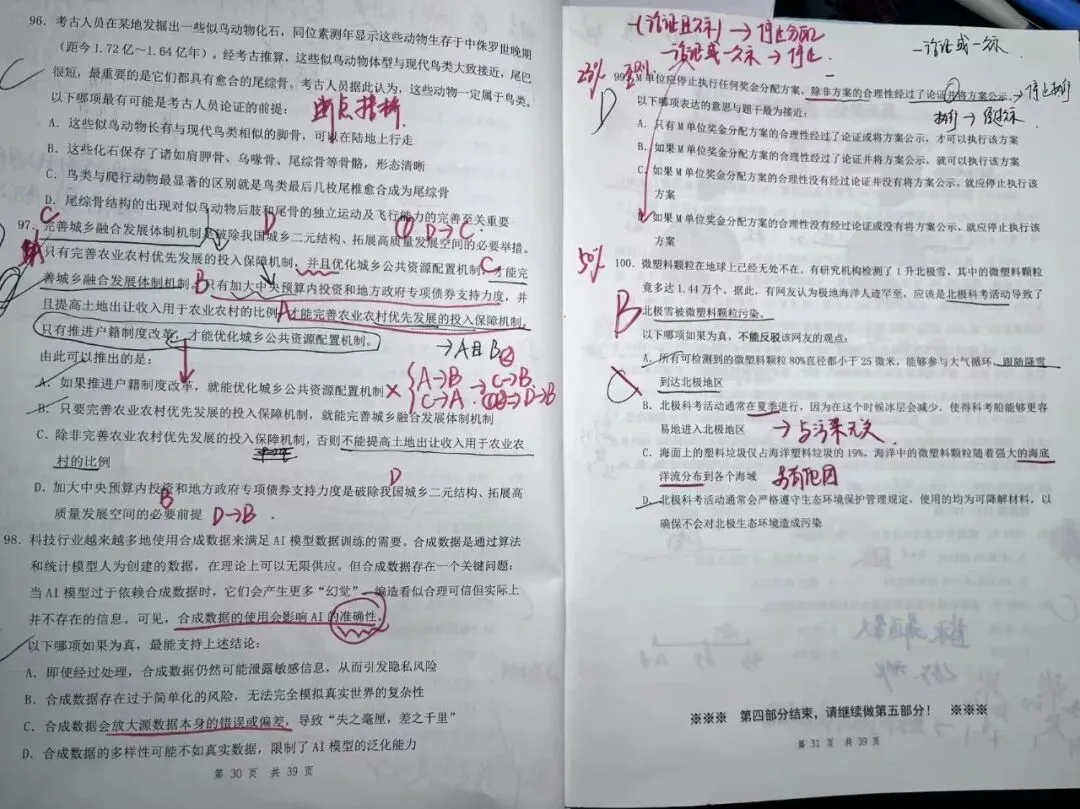 96. 考古人员在某地发掘出一些似鸟动物化石，同位素测年显示这些动物生存于中侏罗世晚期
（距今 1.72 亿～1.64 亿年）。经考古推算，这些似鸟动物体型与现代鸟类大致接近，尾巴
很短，最重要的是它们都具有愈合的尾综骨。考古人员据此认为，这些动物一定属于鸟类。
以下哪项最有可能是考古人员论证的前提：
断点搭桥
A. 这些似鸟动物长有与现代鸟类相似的脚骨，可以在陆地上行走
B. 这些化石保存了诸如肩胛骨、乌喙骨、尾综骨等骨骼，形态清晰
C. 鸟类与爬行动物最显著的区别就是鸟类最后几枚尾椎愈合成为尾综骨
D. 尾综骨结构的出现对似鸟动物后肢和尾骨的独立运动及飞行能力的完善至关重要
C D ① D→C
97. 完善城乡融合发展体制机制是破除我国城乡二元结构、拓展高质量发展空间的必要举措。
只有完善农业农村优先发展的投入保障机制，并且优化城乡公共资源配置机制，才能完
善城乡融合发展体制机制。只有加大中央预算内投资和地方政府专项债券支持力度，并
且提高土地出让收入用于农业农村的比例，才能完善农业农村优先发展的投入保障机制。
只有推进户籍制度改革，才能优化城乡公共资源配置机制。
→A且B
由此可以推出的是：
A. 如果推进户籍制度改革，就能优化城乡公共资源配置机制
A→B
C→A
C→B
D→B
B. 只要完善农业农村优先发展的投入保障机制，就能完善城乡融合发展体制机制
C. 除非完善农业农村优先发展的投入保障机制，否则不能提高土地出让收入用于农业农
村的比例
D. 加大中央预算内投资和地方政府专项债券支持力度是破除我国城乡二元结构、拓展高
质量发展空间的必要前提
B D D→B
98. 科技行业越来越多地使用合成数据来满足 AI 模型数据训练的需要。合成数据是通过算法
和统计模型人为创建的数据，在理论上可以无限供应。但合成数据存在一个关键问题：
当 AI 模型过于依赖合成数据时，它们会产生更多“幻觉”，编造看似合理可信但实际上
并不存在的信息。可见，合成数据的使用会影响 AI 的准确性。
以下哪项如果为真，最能支持上述结论：
A. 即使经过处理，合成数据仍然可能泄露敏感信息，从而引发隐私风险
B. 合成数据存在过于简单化的风险，无法完全模拟真实世界的复杂性
C. 合成数据会放大源数据本身的错误或偏差，导致“失之毫厘，差之千里”
D. 合成数据的多样性可能不如真实数据，限制了 AI 模型的泛化能力
第 30 页 共 39 页
-(论证且公示)→停止分配
-论证或-公示→停止
-论证或-公示
23% 否则
D
99. M 单位应停止执行任何奖金分配方案，除非方案的合理性经过了论证并将方案公示。
→停止执行
以下哪项表达的意思与题干最为接近：
A. 只有 M 单位奖金分配方案的合理性经过了论证或将方案公示，才可以执行该方案
B. 如果 M 单位奖金分配方案的合理性经过了论证并将方案公示，就可以执行该方案
C. 如果 M 单位奖金分配方案的合理性没有经过论证并没有将方案公示，就应停止执行该
方案
D. 如果 M 单位奖金分配方案的合理性没有经过论证或没有将方案公示，就应停止执行该
方案
50%
B
100. 微塑料颗粒在地球上已经无处不在。有研究机构检测了 1 升北极雪，其中的微塑料颗粒
竟多达 1.44 万个。据此，有网友认为极地海洋人迹罕至，应该是北极科考活动导致了
北极雪被微塑料颗粒污染。
以下哪项如果为真，不能反驳该网友的观点：
A. 所有可检测到的微塑料颗粒 80%直径都小于 25 微米，能够参与大气循环，跟随降雪
到达北极地区
B. 北极科考活动通常在夏季进行，因为在这个时候冰层会减少，使得科考船能够更容
易地进入北极地区
→与污染无关
C. 海面上的塑料垃圾仅占海洋塑料垃圾的 19%，海洋中的微塑料颗粒随着强大的海底
洋流分布到各个海域
另有他因
D. 北极科考活动通常会严格遵守生态环境保护管理规定，使用的均为可降解材料，以
确保不会对北极生态环境造成污染
※※※ 第四部分结束，请继续做第五部分！ ※※※
第 31 页 共 39 页